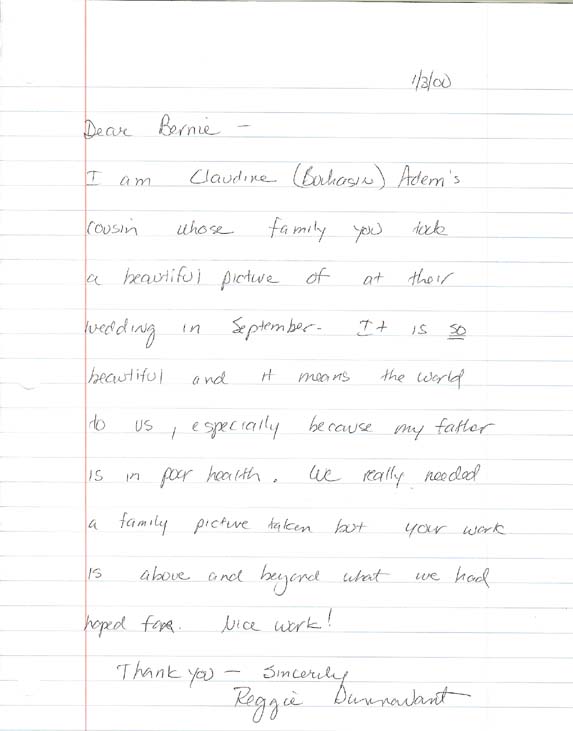 1/3/00
Dear Bernie –
I am Claudine (Bochasin) Adem's
cousin whose family you took
a beautiful picture of at their
wedding in September. It is so
beautiful and it means the world
to us, especially because my father
is in poor health. We really needed
a family picture taken but your work
is above and beyond what we had
hoped for. Nice work!
Thank you – Sincerely
Reggie Dunnavant